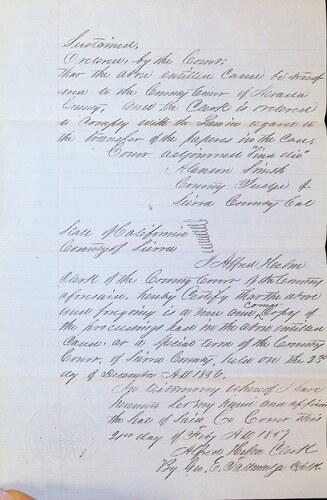 Sustained,
Ordered, by the Court,
that the above entitled cause be transf
ered to the County Court of Nevada
County, and the Clerk is ordered
to comply with the Law in regard to
the transfer of the papers in the case,
Court adjourned "Sine die"
Alanson Smith
County Judge of
Sierra County Cal
State of California
County of Sierra
I Alfred Helm
Clerk of the County Court of the County
aforesaid, hereby Certify that the above
and foregoing is a true and Copy of
the proceedings had in the above entitled
Cause, at a special term of the County
Court, of Sierra County, held on the 23d
day of December A.D 1856.
In testimony whereof I have
hereunto set my hand and affixed
the Seal of Said Co Court this
21st day of Feby A.D 1857
Alfred Helm Clerk
By Geo. E.